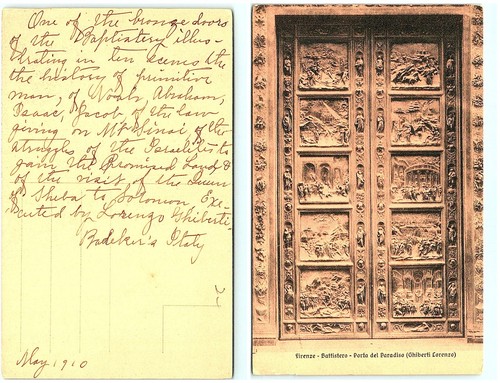 One of the bronze doors
of the Baptistery illus-
trating in ten scenes the
the history of primitive
man, of Noah, Abraham,
Isaac, Jacob, of the law
giving on Mt Sinai, of the
struggles of the Israelites to
gain the Promised Land &
of the visit of the Queen
of Sheba to Solomon. Exe-
cuted by Lorenzo Ghiberti-
Badeker's Italy
May 1910
Firenze - Battistero - Porta del Paradiso (Ghiberti Lorenzo)